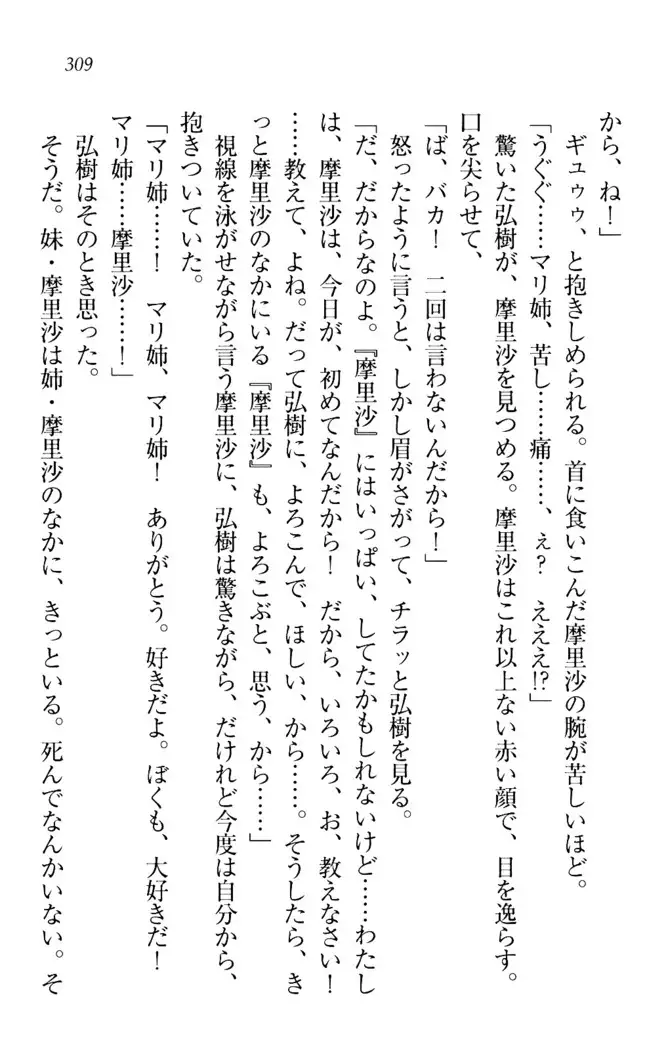 309
から、ね！」
ギュゥゥ、と抱きしめられる。首に食いこんだ摩里沙の腕が苦しいほど。
「うぐぐ……マリ姉、苦し……痛……、ぇ？　えええ!?」
驚いた弘樹が、摩里沙を見つめる。摩里沙はこれ以上ない赤い顔で、目を逸らす。
口を尖らせて、
「ば、バカ！　二回は言わないんだから！」
怒ったように言うと、しかし眉がさがって、チラッと弘樹を見る。
「だ、だからなのよ。『摩里沙』にはいっぱい、してたかもしれないけど……わたし
は、摩里沙は、今日が、初めてなんだから！　だから、いろいろ、お、教えなさい！
……教えて、よね。だって弘樹に、よろこんで、ほしい、から……。そうしたら、き
っと摩里沙のなかにいる『摩里沙』も、よろこぶと、思う、から……」
視線を泳がせながら言う摩里沙に、弘樹は驚きながら、だけれど今度は自分から、
抱きついていた。
「マリ姉……！　マリ姉、マリ姉！　ありがとう。好きだよ。ぼくも、大好きだ！
マリ姉……摩里沙……！」
弘樹はそのとき思った。
そうだ。妹・摩里沙は姉・摩里沙のなかに、きっといる。死んでなんかいない。そ